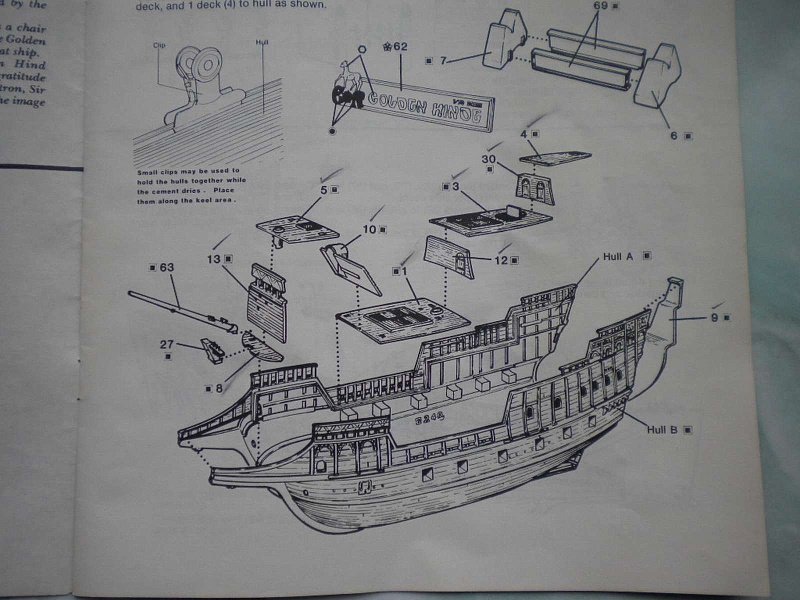 d by the
s a chair
e Golden
at ship.
n Hind
ratitude
tron, Sir
he image
deck, and 1 deck (4) to hull as shown.
Clip
Hull
Small clips may be used to
hold the hulls together while
the cement dries. Place
them along the keel area.
62
GOLDEN HINDE
69
7
6
4
30
3
5
10
13
12
1
Hull A
63
9
27
8
E242
Hull B